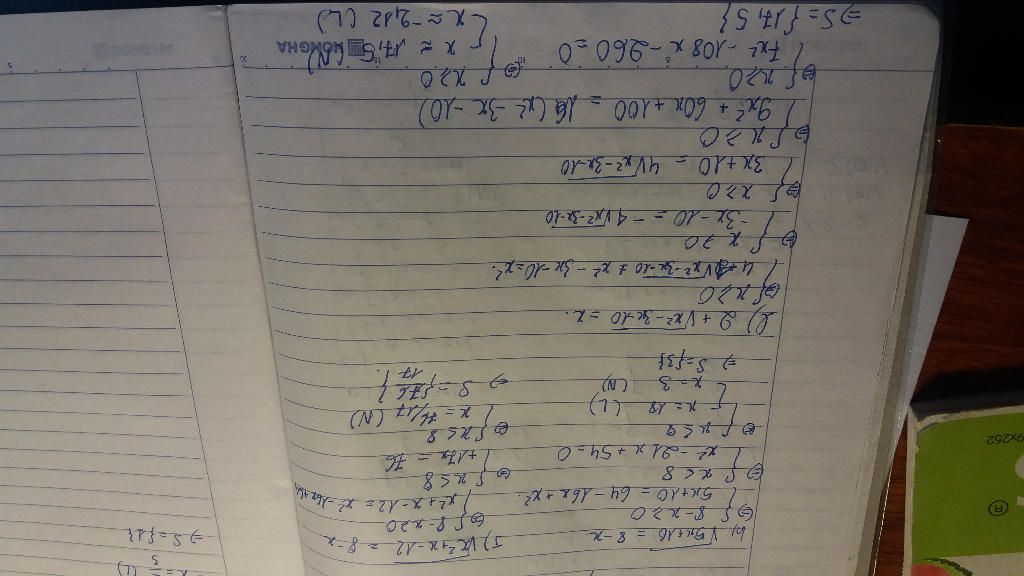 b, √5x+10 = 8-x
⇔ { 8-x ≥ 0
5x+10 = 64 -16x + x².
⇔ { x ≤ 8
x² -21x + 54 = 0
⇔ { x ≤ 8
[ x = 18 (L)
x = 3 (N)
⇒ S = {3}
5) √x²+x-12 = 8-x
⇔ { 8-x ≥ 0
x²+x-12 = x²-16x+64
⇔ { x ≤ 8
+17x = 76
⇔ { x ≤ 8
x = 76/17 (N)
⇒ S = {76/17}.
2) 2 + √x²-3x-10 = x.
⇔ { x ≥ 0
4 + 4√x²-3x-10 + x² - 3x-10 = x².
⇔ { x ≥ 0
-3x-10 = -4√x²-3x-10
⇔ { x ≥ 0
3x+10 = 4√x²-3x-10
⇔ { x ≥ 0
9x² + 60x + 100 = 16(x²-3x-10)
⇔ { x ≥ 0
7x² -108x -260 = 0
⇔ { x ≥ 0
[ x ≈ 17,5 (N)
x ≈ -2,12 (L)
⇒ S = {17,5}
⇒ S = {1}
HONG HA
9x252
®